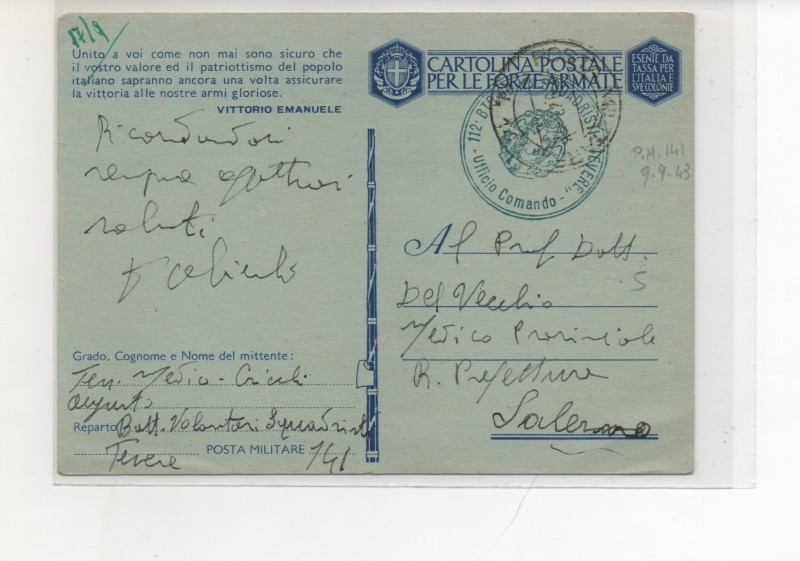 17/9
Unito a voi come non mai sono sicuro che
il vostro valore ed il patriottismo del popolo
italiano sapranno ancora una volta assicurare
la vittoria alle nostre armi gloriose.
VITTORIO EMANUELE
Ricordandovi
saluti
CARTOLINA POSTALE
PER LE FORZE ARMATE
ESENTE DA
TASSA PER
L'ITALIA E
SVE COLONIE
112° TEVERE"
Ufficio Comando
P.M. 141
9.9.43
Al Prof Dott. S
Del Vecchio
Medico Provinciale
R. Prefettura
Salerno
Grado, Cognome e Nome del mittente:
Ten. Medico
Reparto Batt. Volontari Squadristi
Tevere POSTA MILITARE 141